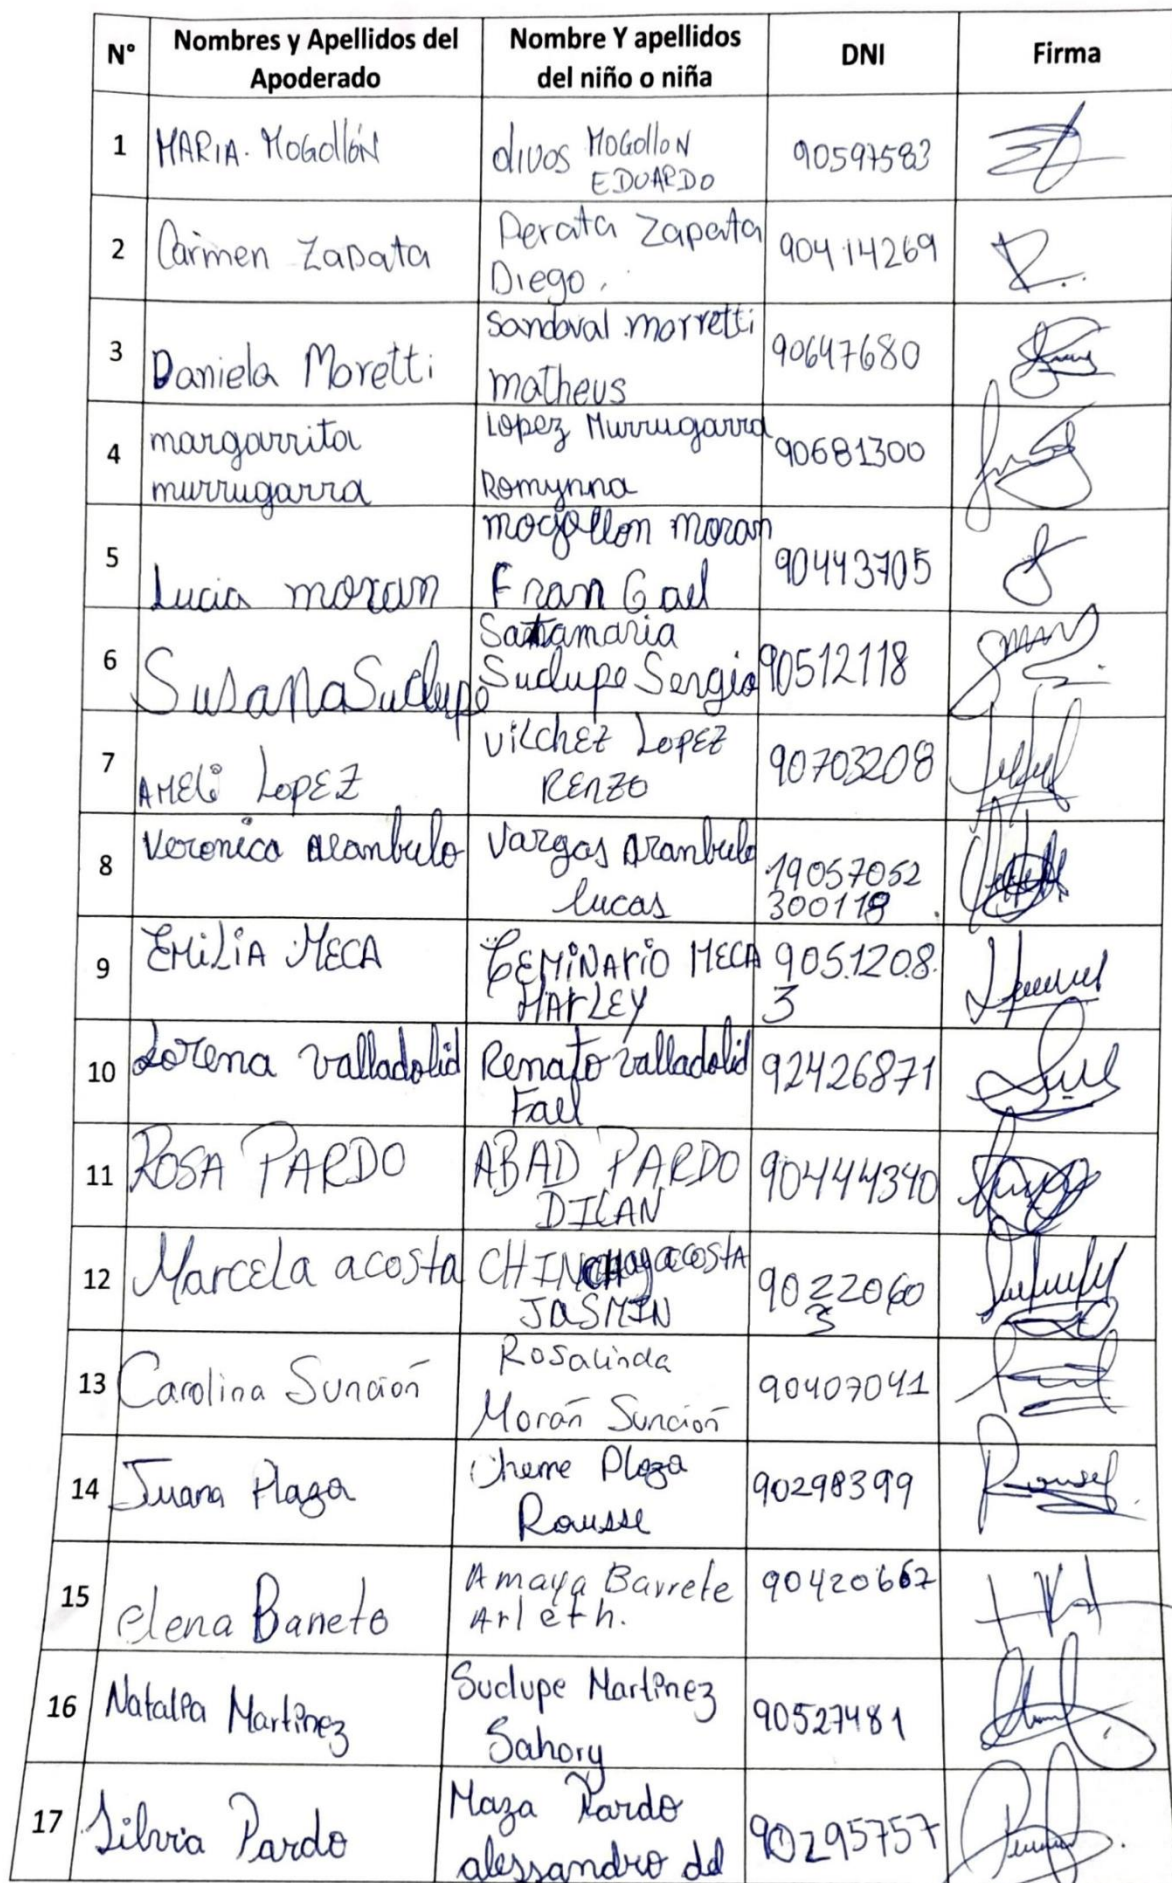 N° Nombres y Apellidos del Apoderado Nombre Y apellidos del niño o niña DNI Firma
1 MARIA. MOGOllÓN divos MOGOllON EDUARDO 90597583
2 Carmen Zapata Perata Zapata Diego. 90414269
3 Daniela Moretti Sandoval morretti matheus 90647680
4 margarrita murrugarra Lopez Murrugarra Romynna 90681300
5 Lucia moran mogollon moran Fran Gael 90443705
6 Susana Suclupe Santamaria Suclupe Sergio 90512118
7 AMELi LopEZ VilchEZ LopEZ RENZO 90703208
8 Veronica Arambulo Vargas Arambulo lucas 19057052 300118
9 EMiLiA MECA CEMiNARiO MECA HARLEY 9051208 3
10 Lorena Valladolid Renato Valladolid Fael 92426871
11 ROSA PARDO ABAD PARDO DILAN 90444340
12 Marcela acosta CHINCHay acosta JASMIN 90322060
13 Carolina Sunción Rosalinda Morán Sunción 90407041
14 Juana Plaza Cheme Plaza Rousse 90298399
15 elena Baneto Amaya Barrete Arleth. 90420667
16 Natalia Martinez Suclupe Martinez Sahory 90527481
17 Silvia Pardo Maza Pardo alessandro del 90295757